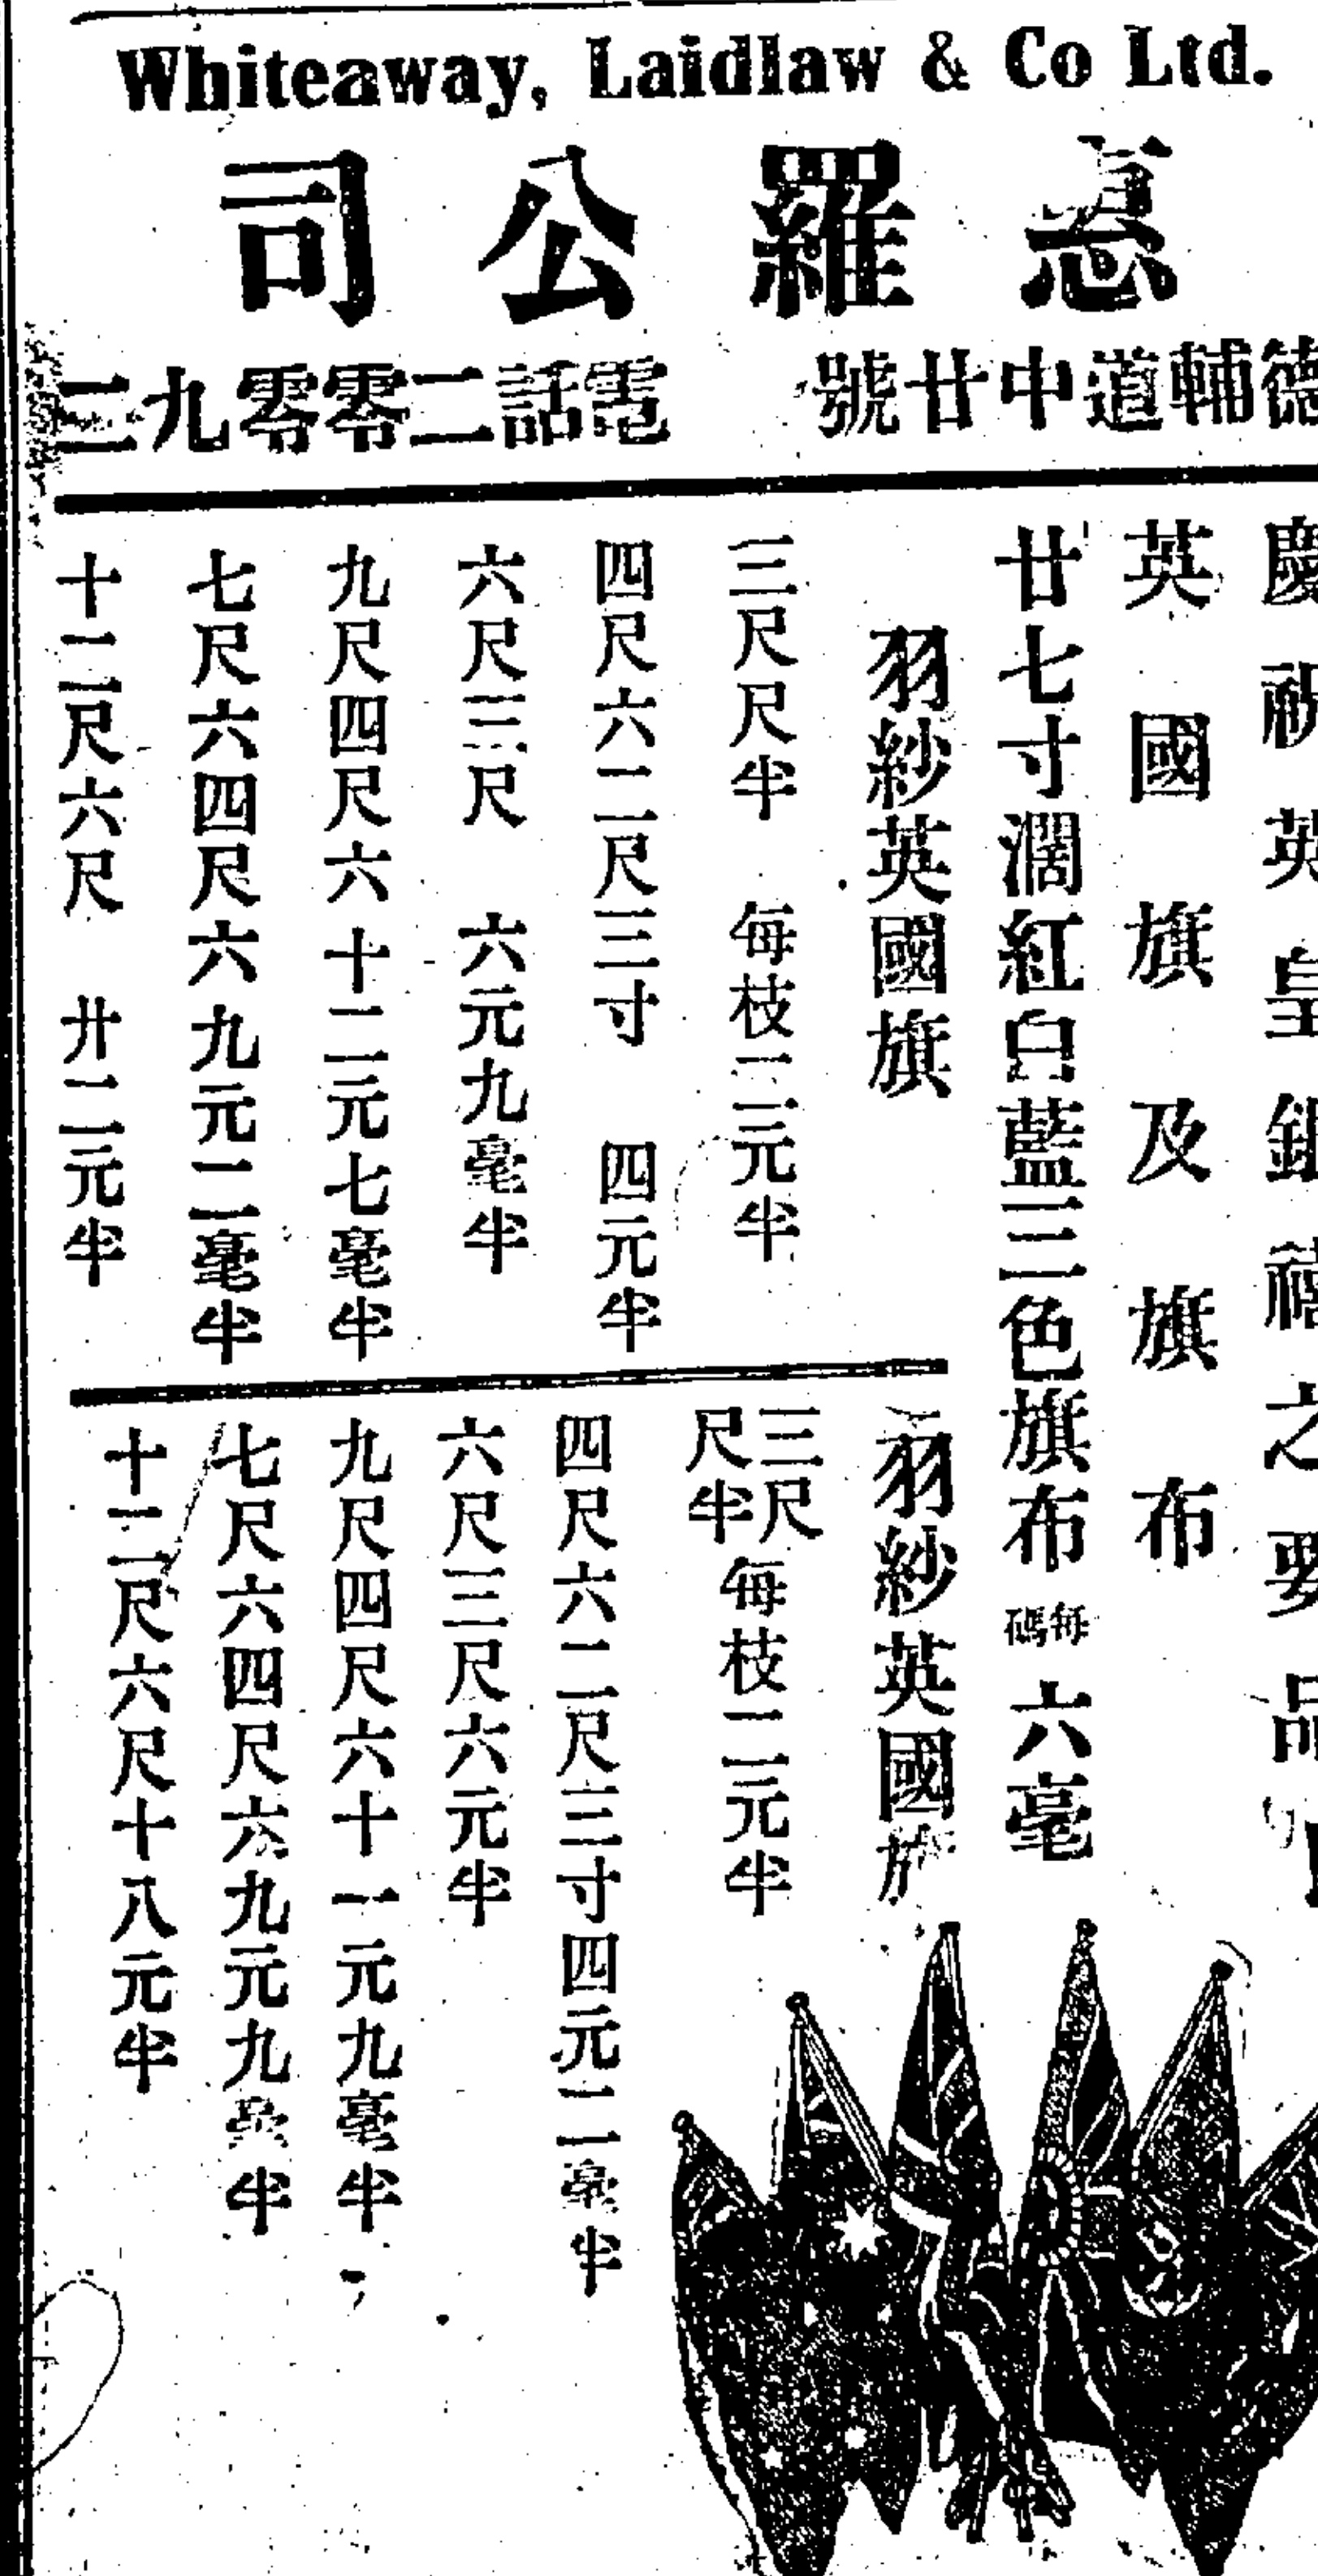 Whiteaway, Laidlaw & Co Ltd.
惠羅公司
德輔道中廿號 電話二零零九三
慶祝英皇銀禧之要品
英國旗及旗布
廿七寸濶紅白藍三色旗布 每碼 六毫
羽紗英國旗
三尺尺半 每枝二元半
四尺六二尺三寸 四元半
六尺三尺 六元九毫半
九尺四尺六 十二元七毫半
七尺六四尺六 九元二毫半
十二尺六尺 廿二元半
羽紗英國旗
三尺尺半 每枝二元半
四尺六二尺三寸四元二毫半
六尺三尺六元半
九尺四尺六十一元九毫半
七尺六四尺六九元九毫半
十二尺六尺十八元半